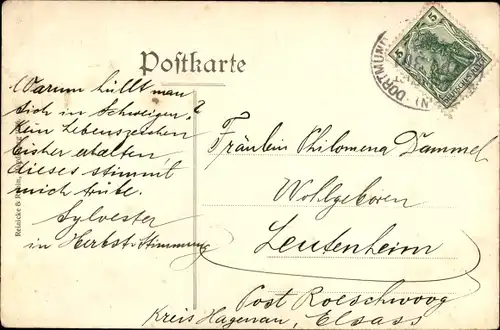 Postkarte
5
5
DORTMUND
Warum hüllt man
sich in Schweigen?
Kein Lebenszeichen
bisher erhalten,
dieses stimmt
mich trübe.
Sylvester
in Herbst-Stimmung
Fräulein Philomena Dammel
Wohlgeboren
Leutenheim
Post Roeschwoog
Kreis Hagenau, Elsass
Reinicke &